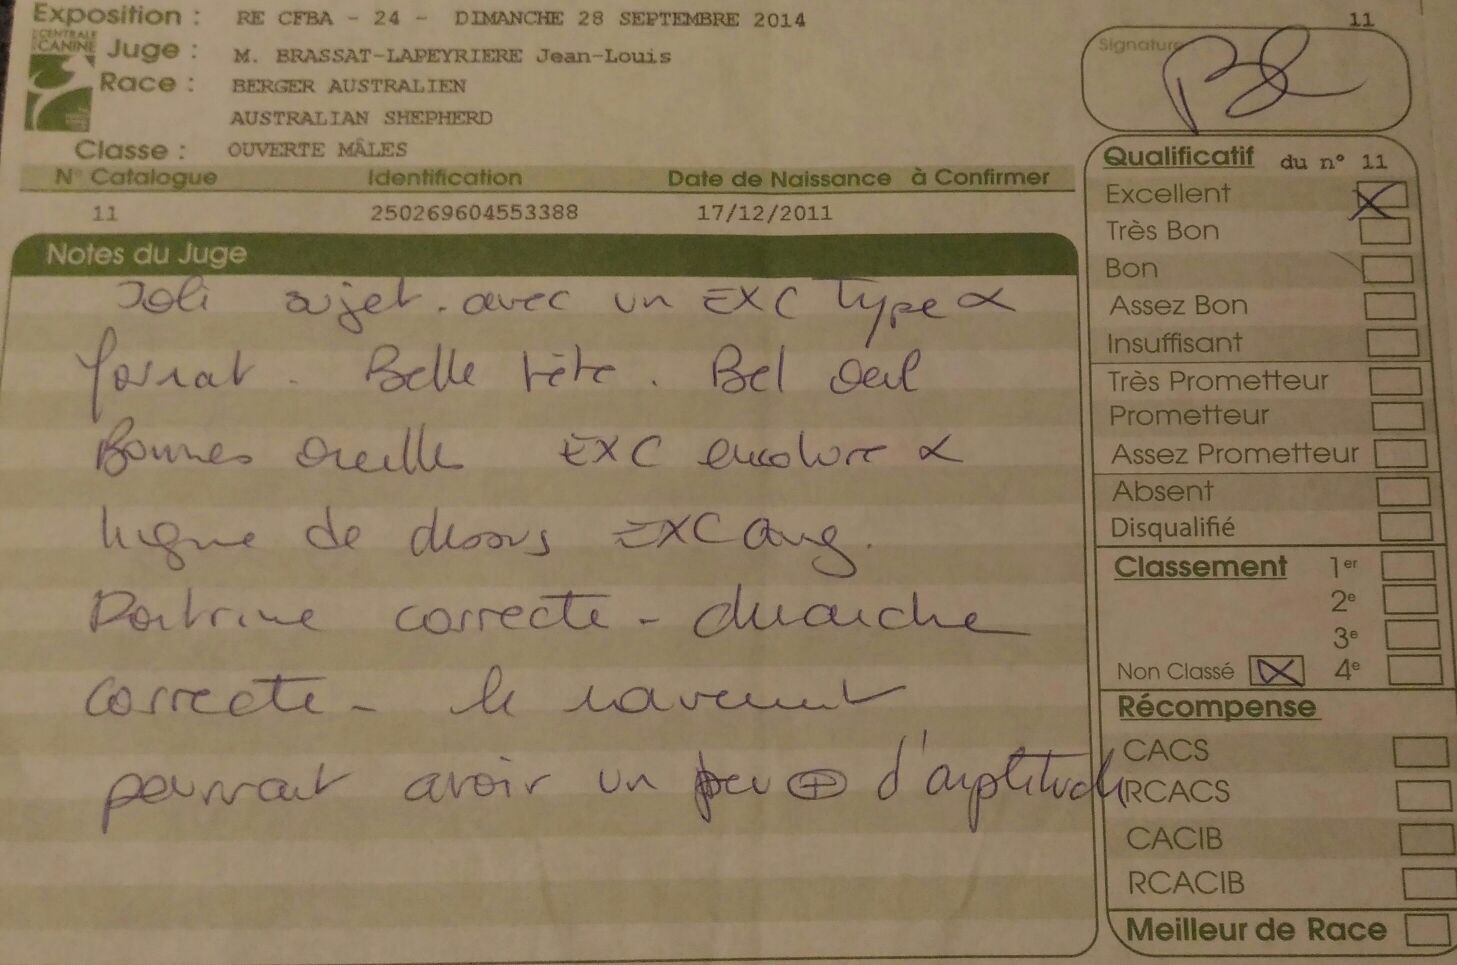 Exposition : RE CFBA - 24 - DIMANCHE 28 SEPTEMBRE 2014
11
CENTRALE
CANINE
Juge : M. BRASSAT-LAPEYRIERE Jean-Louis
Race : BERGER AUSTRALIEN
AUSTRALIAN SHEPHERD
Classe : OUVERTE MÂLES
N° Catalogue Identification Date de Naissance à Confirmer
11 250269604553388 17/12/2011
Notes du Juge
Joli sujet. avec un EXC Type &
format. Belle tête. Bel oeil
Bonnes oreilles EXC encolure &
ligne de dessus EXC ang.
Poitrine correcte - démarche
correcte - le mouvement
pourrait avoir un peu ⊕ d'amplitude
Signature
Qualificatif du n° 11
Excellent
Très Bon
Bon
Assez Bon
Insuffisant
Très Prometteur
Prometteur
Assez Prometteur
Absent
Disqualifié
Classement 1er
2e
3e
Non Classé 4e
Récompense
CACS
RCACS
CACIB
RCACIB
Meilleur de Race